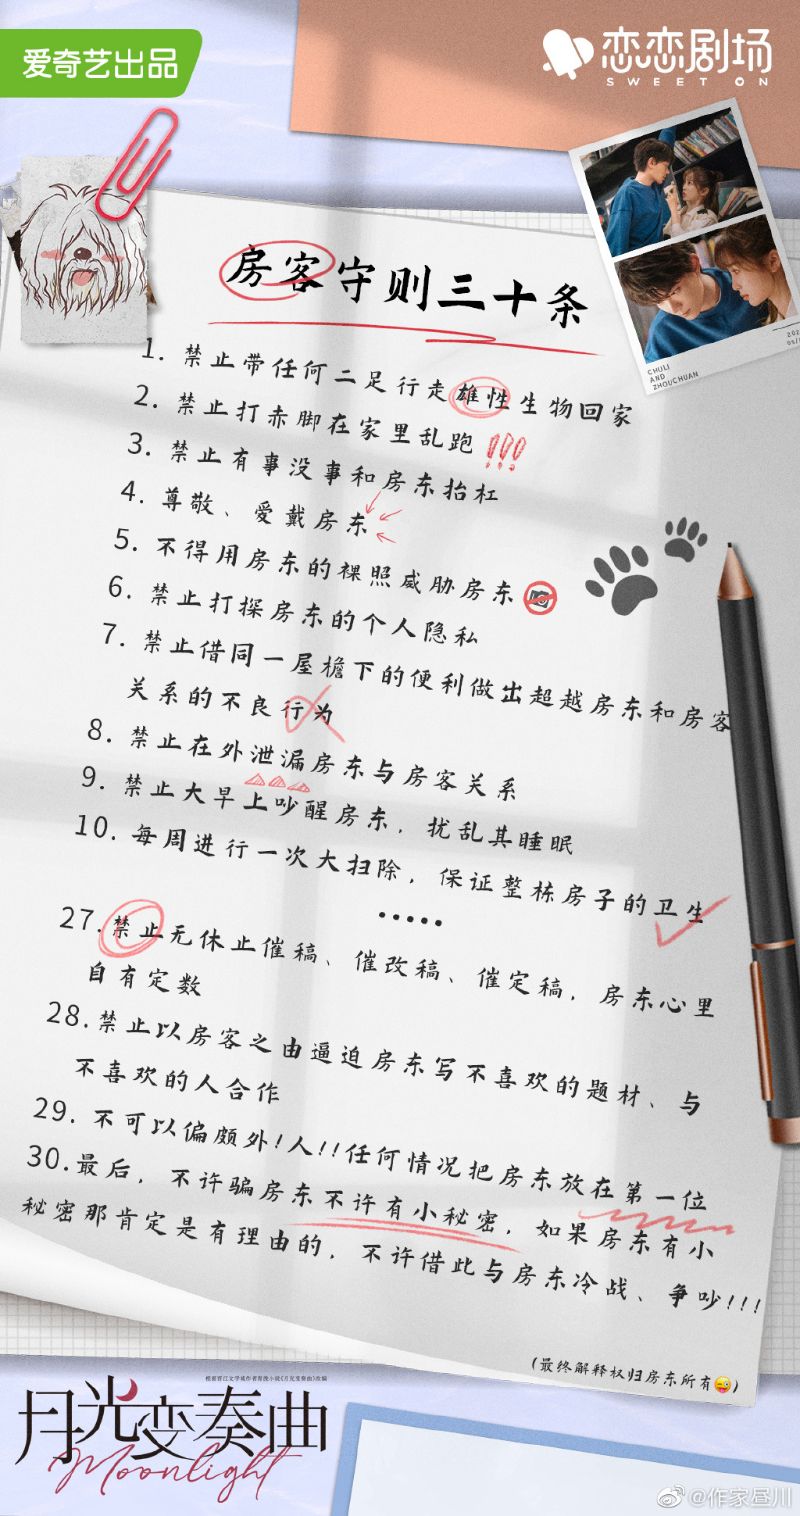 爱奇艺出品
恋恋剧场
SWEET ON
CHULI
AND
ZHOUCHUAN
房客守则三十条
1. 禁止带任何二足行走雄性生物回家
2. 禁止打赤脚在家里乱跑!!!
3. 禁止有事没事和房东抬杠
4. 尊敬、爱戴房东
5. 不得用房东的裸照威胁房东
6. 禁止打探房东的个人隐私
7. 禁止借同一屋檐下的便利做出超越房东和房客
关系的不良行为
8. 禁止在外泄漏房东与房客关系
9. 禁止大早上吵醒房东，扰乱其睡眠
10. 每周进行一次大扫除，保证整栋房子的卫生
·····
27. 禁止无休止催稿、催改稿、催定稿，房东心里
自有定数
28. 禁止以房客之由逼迫房东写不喜欢的题材、与
不喜欢的人合作
29. 不可以偏颇外!人!!任何情况把房东放在第一位
30. 最后，不许骗房东不许有小秘密，如果房东有小
秘密那肯定是有理由的，不许借此与房东冷战、争吵!!!
(最终解释权归房东所有😜)
月光变奏曲
Moonlight
@作家昼川